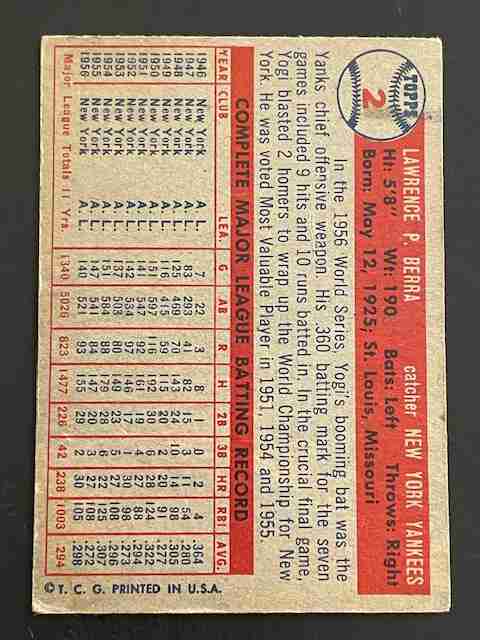 TOPPS
2
LAWRENCE P. BERRA
catcher NEW YORK YANKEES
Ht: 5'8" Wt: 190 Bats: Left Throws: Right
Born: May 12, 1925; St. Louis, Missouri
In the 1956 World Series, Yogi's booming bat was the
Yanks chief offensive weapon. His .360 batting mark for the seven
games included 9 hits and 10 runs batted in. In the crucial final game,
Yogi blasted 2 homers to wrap up the World Championship for New
York. He was voted Most Valuable Player in 1951, 1954 and 1955.
COMPLETE MAJOR LEAGUE BATTING RECORD
YEAR CLUB LEA. G AB R H 2B 3B HR RBI AVG.
1946 New York A. L. 7 22 3 8 1 0 2 4 .364
1947 New York A. L. 83 293 41 82 15 3 11 54 .280
1948 New York A. L. 125 469 70 143 24 10 14 98 .305
1949 New York A. L. 116 415 59 115 20 2 20 91 .277
1950 New York A. L. 151 597 116 192 30 6 28 124 .322
1951 New York A. L. 141 547 92 161 19 4 27 88 .294
1952 New York A. L. 142 534 97 146 17 1 30 98 .273
1953 New York A. L. 137 503 80 149 23 5 27 108 .296
1954 New York A. L. 151 584 88 179 28 6 22 125 .307
1955 New York A. L. 147 541 84 147 20 3 27 108 .272
1956 New York A. L. 140 521 93 155 29 2 30 105 .298
Major League Totals 11 Yrs. 1340 5026 823 1477 226 42 238 1003 .294
© T. C. G. PRINTED IN U.S.A.